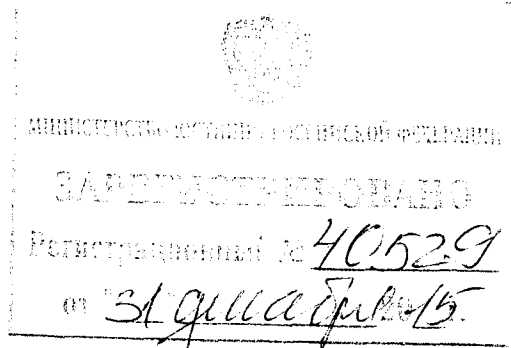 МИНИСТЕРСТВО ЮСТИЦИИ РОССИЙСКОЙ ФЕДЕРАЦИИ
ЗАРЕГИСТРИРОВАНО
Регистрационный № 40529
от "31" декабря 2015.